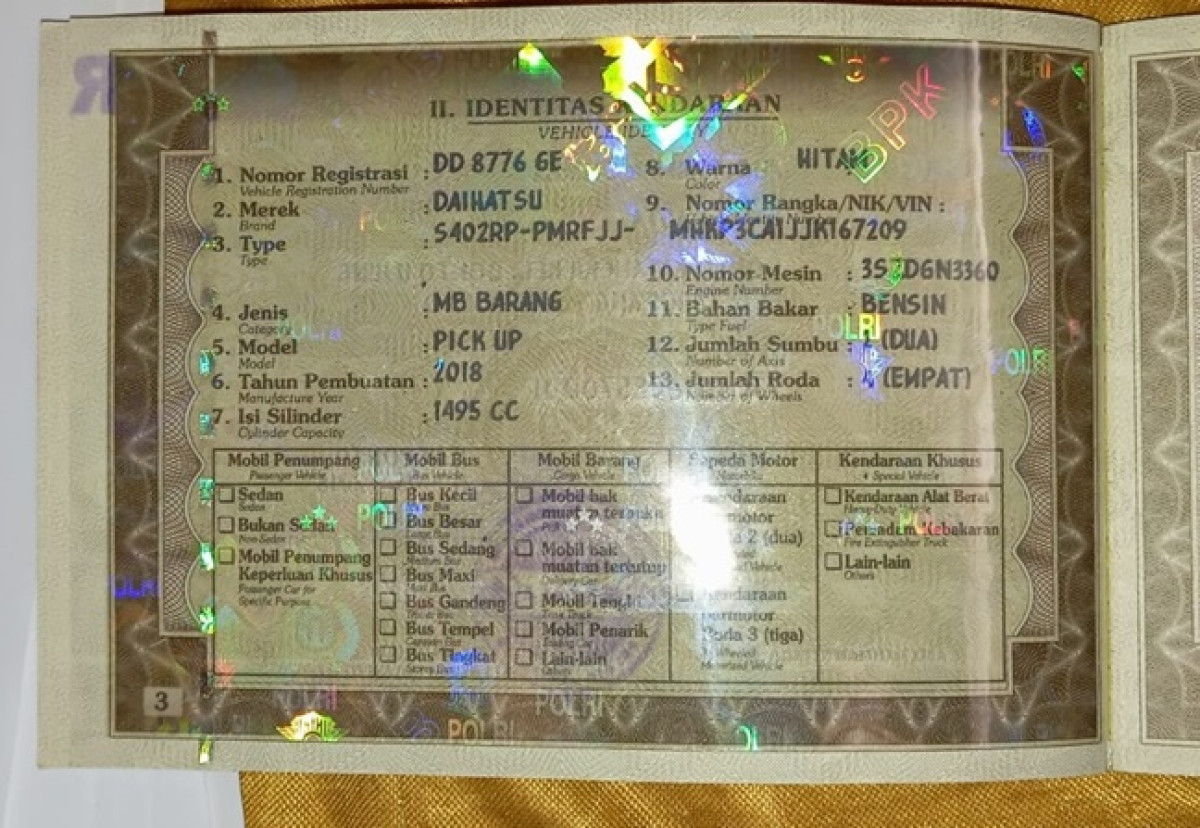 II. IDENTITAS KENDARAAN
VEHICLE IDENTITY
1. Nomor Registrasi : DD 8776 GE
Vehicle Registration Number
2. Merek : DAIHATSU
Brand
3. Type : S402RP-PMRFJJ-
Type
4. Jenis : MB BARANG
Category
5. Model : PICK UP
Model
6. Tahun Pembuatan : 2018
Manufacture Year
7. Isi Silinder : 1495 CC
Cylinder Capacity
8. Warna HITAM
Color
9. Nomor Rangka/NIK/VIN :
MHKP3CA1JJK167209
10. Nomor Mesin :
Engine Number
11. Bahan Bakar : BENSIN
Type Fuel
12. Jumlah Sumbu : (DUA)
Number of Axis
13. Jumlah Roda : 4 (EMPAT)
Number of Wheels
Mobil Penumpang
Passenger Vehicle
Sedan
Sedan
Bukan Sedan
Non Sedan
Mobil Penumpang
Keperluan Khusus
Passenger Car for
Specific Purpose
Mobil Bus
Bus Vehicle
Bus Kecil
Bus Besar
Bus Sedang
Medium Bus
Bus Maxi
Maxi Bus
Bus Gandeng
Bus Tempel
Bus Tingkat
Mobil Barang
Cargo Vehicle
Mobil bak
muatan terbuka
Mobil bak
muatan tertutup
Mobil Tangki
Mobil Penarik
Lain-lain
Others
Sepeda Motor
Kendaraan
2 (dua)
Kendaraan
bermotor
Roda 3 (tiga)
Motorized Vehicle
Kendaraan Khusus
Special Vehicle
Kendaraan Alat Berat
Heavy-Duty Vehicle
Pemadam Kebakaran
Fire Extinguisher Truck
Lain-lain
Others
3
BPKB
POLRI
POLRI
POLRI
POLRI